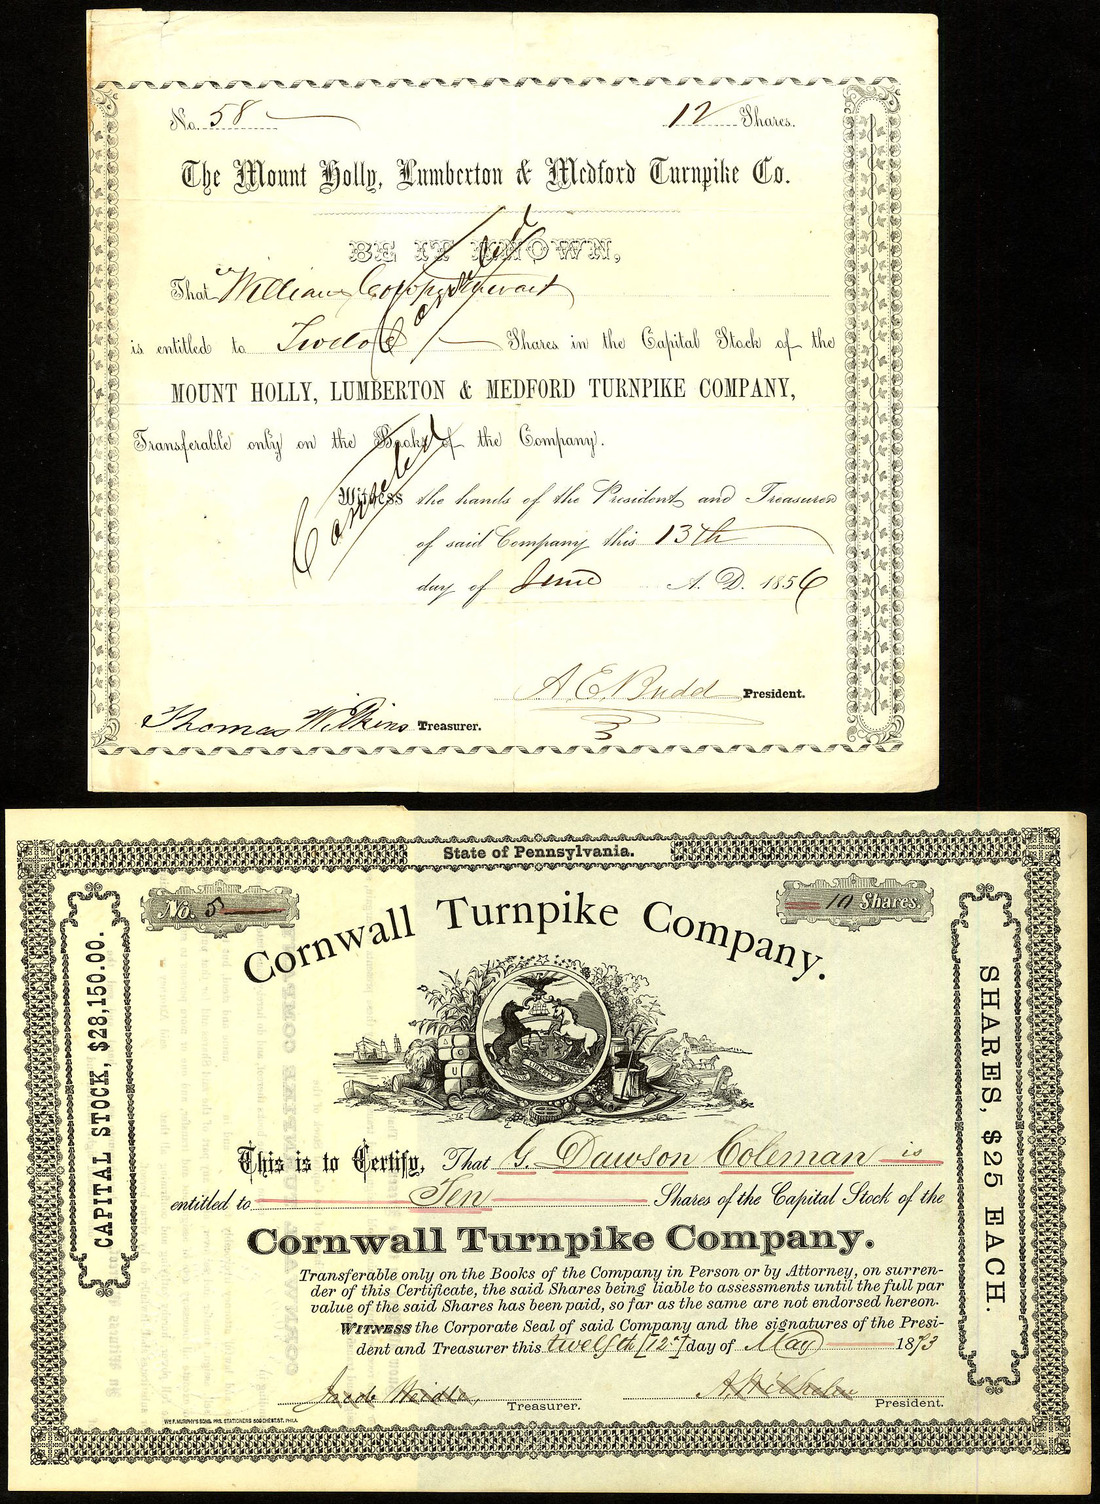 No. 58
12 Shares.
The Mount Holly, Lumberton & Medford Turnpike Co.
BE IT KNOWN,
That William Cowper
Canceled
is entitled to Twelve Shares in the Capital Stock of the
MOUNT HOLLY, LUMBERTON & MEDFORD TURNPIKE COMPANY,
Transferable only on the Books of the Company.
Canceled
Witness the hands of the President and Treasurer
of said Company this 13th
day of June A. D. 1856
A E Budd President.
Thomas Wilkins Treasurer.
State of Pennsylvania.
No. 5
10 Shares.
Cornwall Turnpike Company.
CAPITAL STOCK, $28,150.00.
SHARES, $25 EACH.
This is to Certify, That G. Dawson Coleman is
entitled to Ten Shares of the Capital Stock of the
Cornwall Turnpike Company.
Transferable only on the Books of the Company in Person or by Attorney, on surren-
der of this Certificate, the said Shares being liable to assessments until the full par
value of the said Shares has been paid, so far as the same are not endorsed hereon.
WITNESS the Corporate Seal of said Company and the signatures of the Presi-
dent and Treasurer this twelfth [12th] day of May 1873
Jacob
Treasurer.
President.
WM F. MURPHY'S SONS. PHIL. STATIONERS 509 CHEST. ST. PHILA.